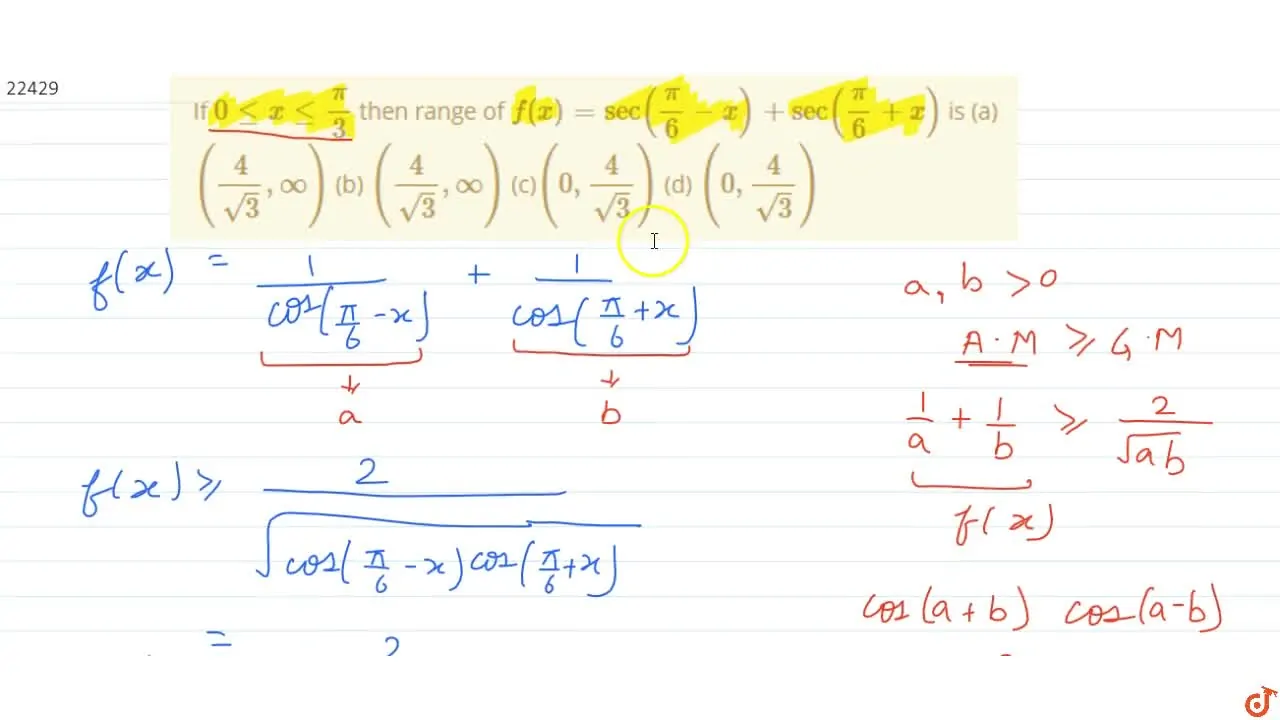 22429
If 0 ≤ x ≤ π/3 then range of f(x) = sec(π/6 − x) + sec(π/6 + x) is (a)
(4/√3, ∞) (b) (4/√3, ∞) (c) (0, 4/√3) (d) (0, 4/√3)
f(x) = 1/cos(π/6 − x) + 1/cos(π/6 + x)
a b
f(x) ≥ 2/√(cos(π/6 − x) cos(π/6 + x))
= 2
a, b > 0
A.M ≥ G.M
1/a + 1/b ≥ 2/√ab
f(x)
cos(a + b) cos(a − b)